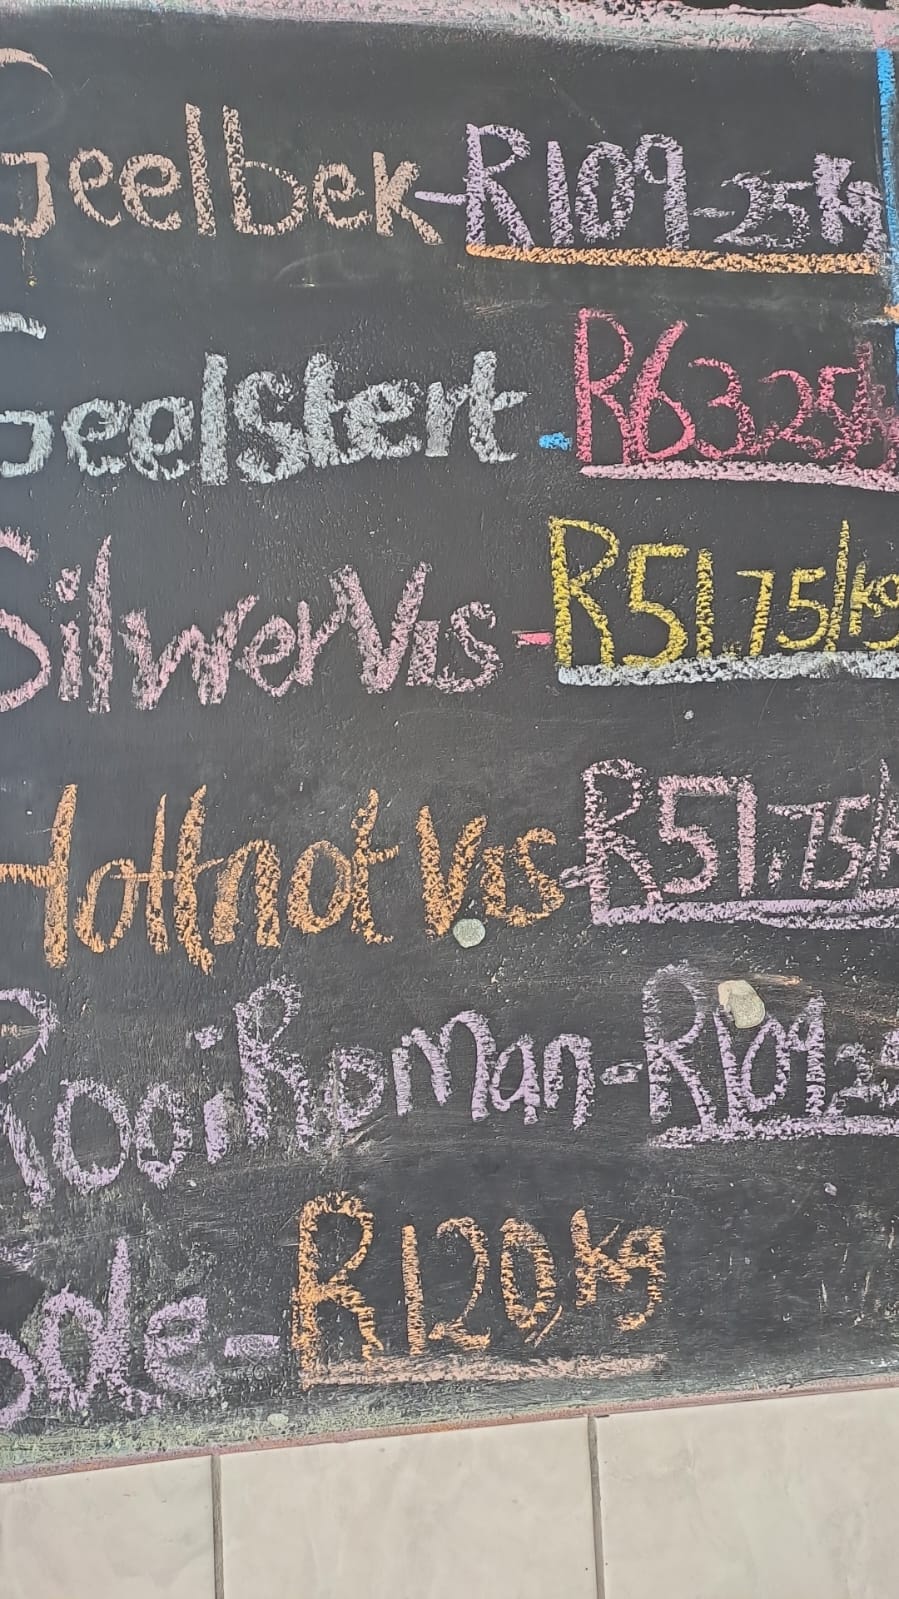 Geelbek - R109-25 kg
Geelstert - R63.25
Silwer Vis - R51.75/kg
Hottnot Vis - R51.75/k
Rooi Roman - R109.25
Sole - R120/kg